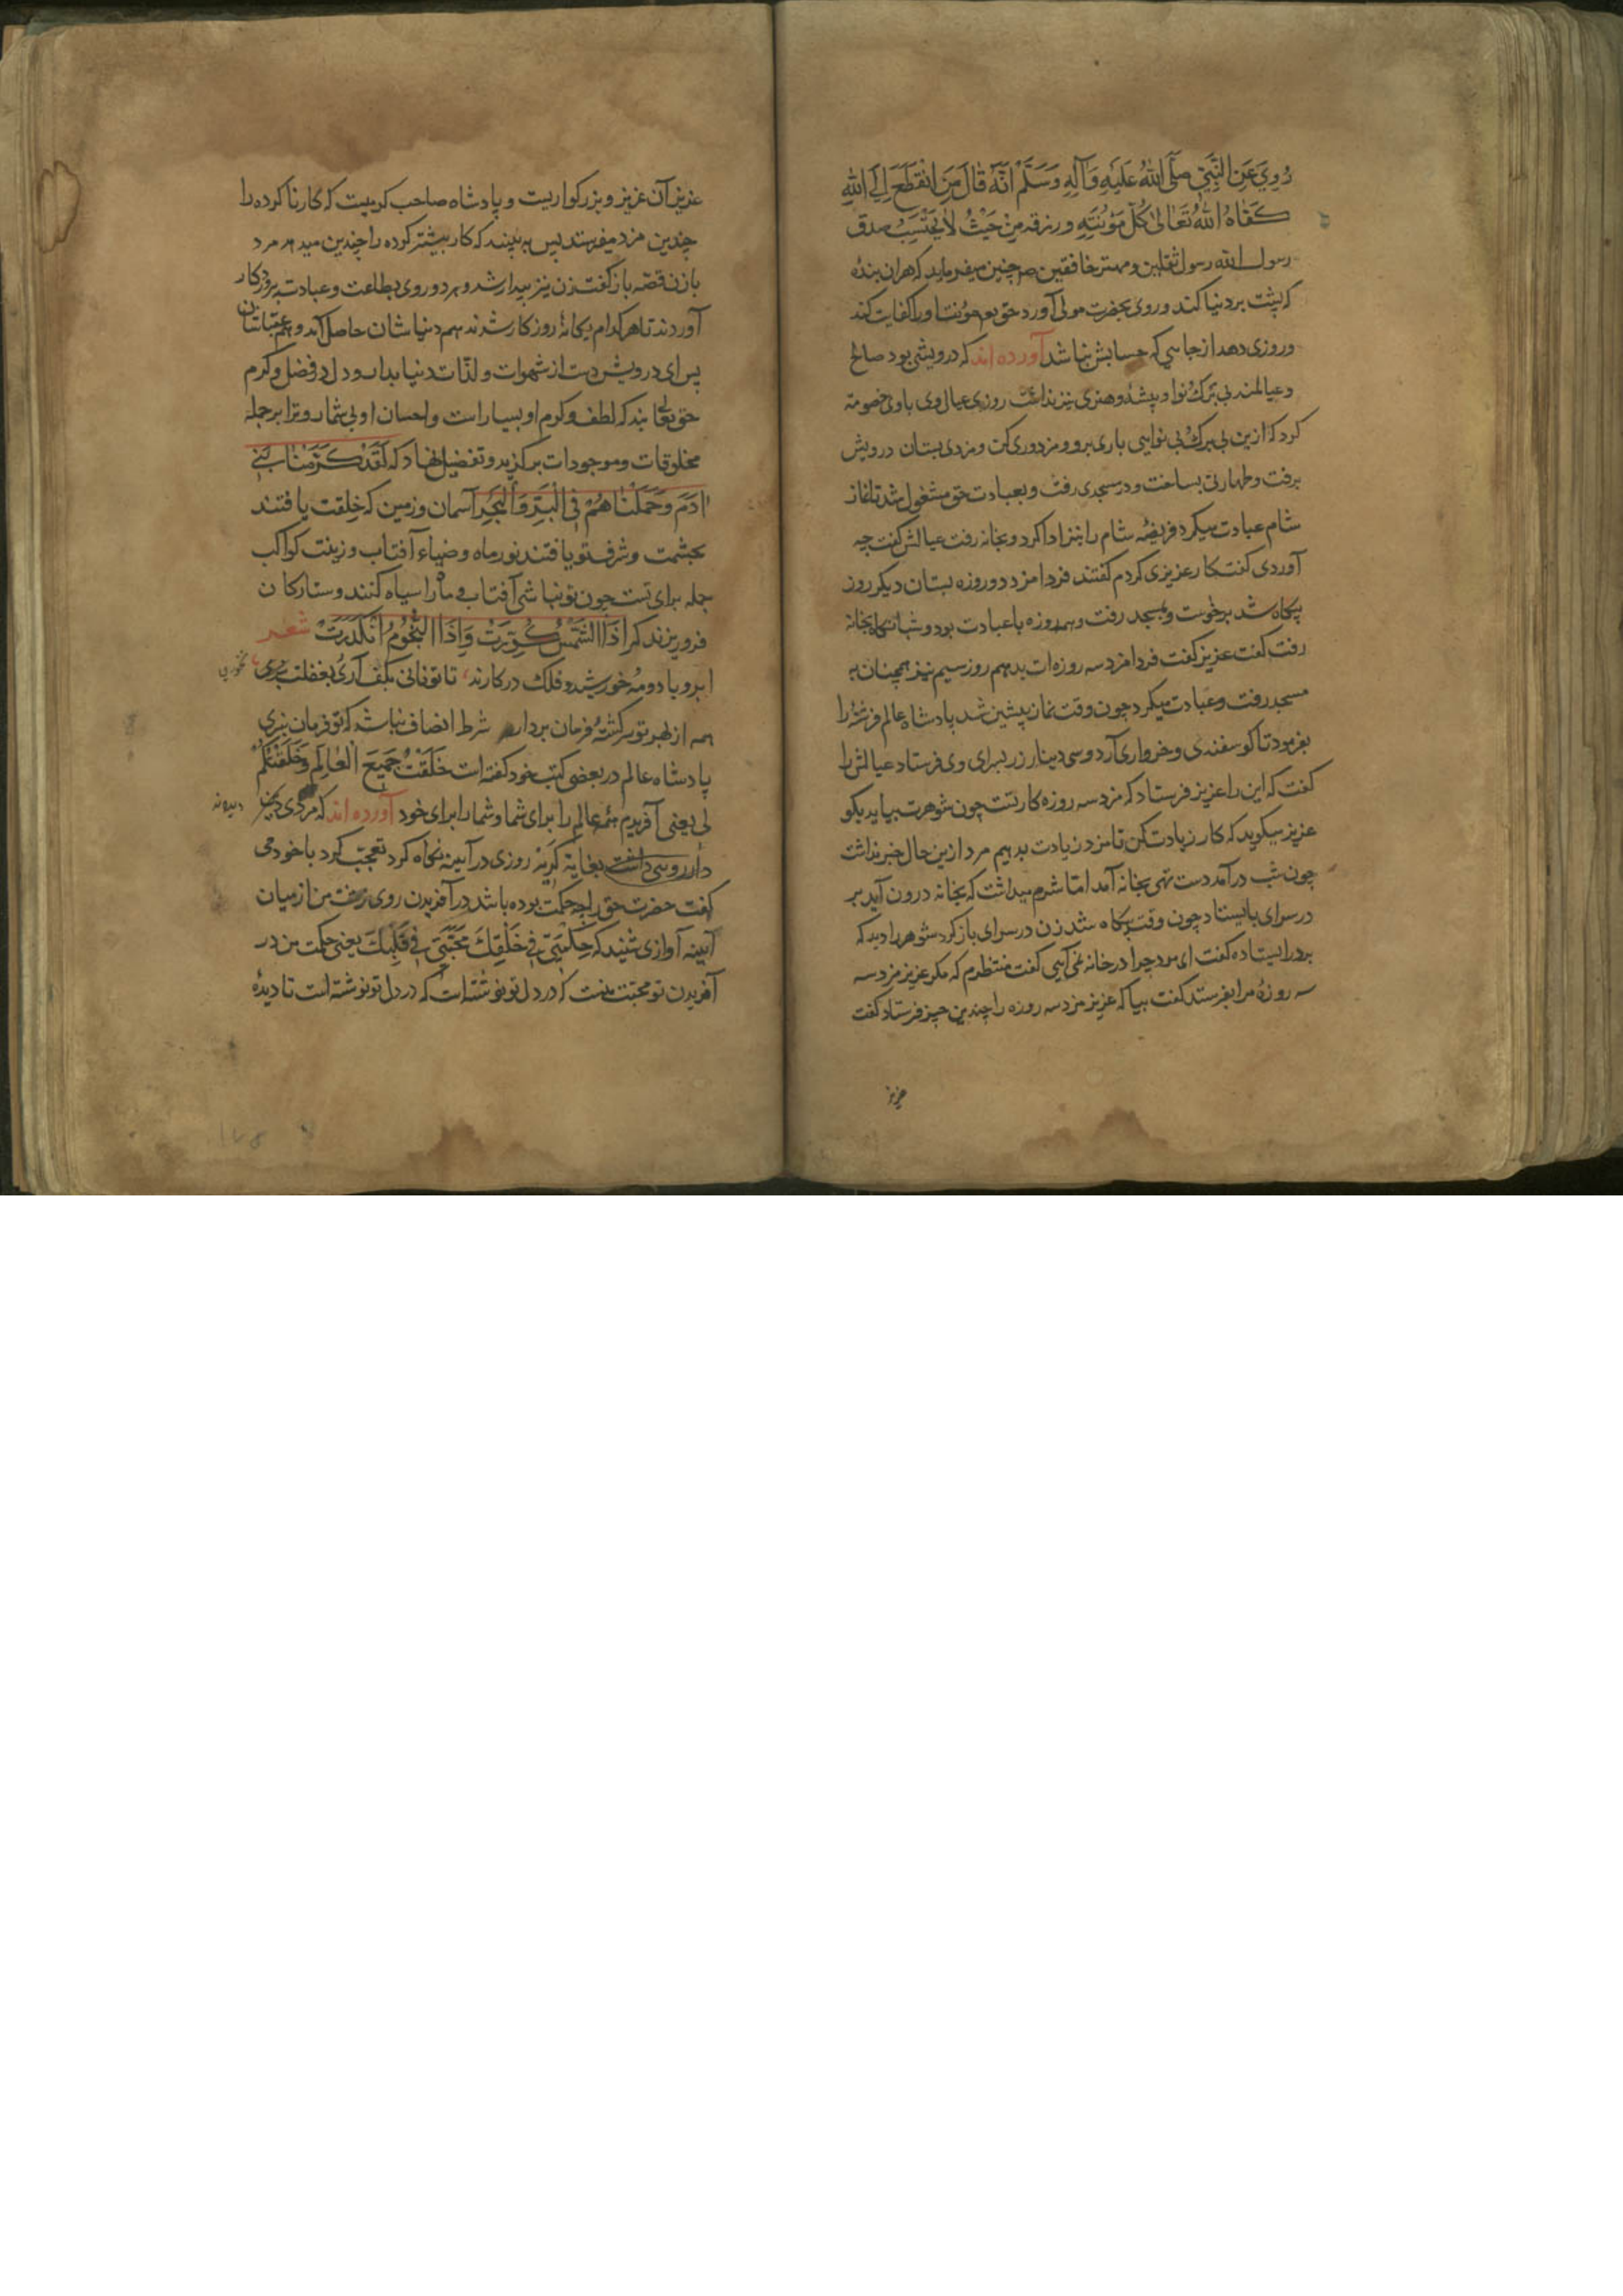 رُوِيَ عَنِ النَّبِيِّ صَلَّى اللّٰهُ عَلَيْهِ وَآلِهِ وَسَلَّمْ اَنَّهُ قَالَ مَنِ انْقَطَعَ اِلَى اللّٰهِ
كَفَاهُ اللّٰهُ تَعَالٰى كُلَّ مَؤُنَتِهِ ورزقه مِنْ حَيْثُ لَا يَحْتَسِبُ صدق
رسول الله رسول ثقلین ومهتر خافقین صم چنین میفرماید که هران بندهٔ
که پشت بر دنیا کند و روی بحضرت مولی آورد حق تع مؤنت او را کفایت کند
و روزی دهد از جایی که حسابش نباشد آورده اند که درویشی بود صالح
و عیالمند بی برک و نوا و پیشه و هنری نیز نداشت روزی عیال وی باوی خصومة
کرد که ازین بی برک و بی نوایی باری برو و مزدوری کن و مزدی بستان درویش
برفت و طهارتی بساخت و در مسجدی رفت و بعبادت حق مشغول شد تا نماز
شام عبادت میکرد فریضهٔ شام را بنزادا کرد و بخانه رفت عیالش کفت چه
آوردی کفت کار عزیزی کردم کفتند فردا مزد دو روزه بستان دیکر روز
پکاه شد برخوست و بمسجد رفت و همه روزه با عبادت بود و شبانکاه بخانه
رفت کفت عزیز کفت فردا مزد سه روزه ات بدهم روز سیم نیز همچنان به
مسجد رفت و عبادت میکرد چون وقت نماز پیشین شد پادشاه عالم فرشتهٔ را
بفرمود تا کوسفندی و خرواری آرد و سی دینار زر بسرای وی فرستاد عیالش را
کفت که این را عزیز فرستاد که مزد سه روزه کار تست چون شوهرت بیاید بکو
عزیز میکوید که کار زیادت کن تا مزد زیادت بدهیم مرد ازین حال خبر نداشت
چون شب درآمد دست تهی بخانه آمد اما شرم میداشت که بخانه درون آید بر
در سرای بایستاد چون وقت پکاه شد زن در سرای باز کرد شوهر را دید که
بر در ایستاده کفت ای مرد چرا در خانه نمی آیی کفت منتظرم که مکر عزیز مزد سه
سه روزهٔ مرا بفرستد کفت بیا که عزیز مزد سه روزه را چندین چیز فرستاد کفت
عزیز
عزیز آن عزیز و بزرکواریست و پادشاه صاحب کرمیست که کار ناکرده را
چندین مزد میفرستد پس ببینید که کار بیشتر کرده را چندین میدهد مرد
با زن قصه باز کفت زن نیز بیدار شد و هر دو روی بطاعت و عبادت پروردکار
آوردند تا هر کدام یکانهٔ روزکار شدند هم دنیا شان حاصل آمد و هم عقباشان
پس ای درویش دست از شهوات و لذّات دنیا بدار و دل در فضل و کرم
حق تعالی بند که لطف و کرم او بسیار است و احسان او بی شمار و ترا بر جمله
مخلوقات و موجودات برکزید و تفضیل نهاد که لَقَدْ كَرَّمْنَا بَنِي
اٰدَمَ وَحَمَلْنَاهُمْ فِي الْبَرِّ وَالْبَحْرِ آسمان و زمین که خلقت یافتند
بحشمت و شرف تو یافتند نور ماه و ضیاء آفتاب و زینت کواکب
جمله برای تست چون تو نباشی آفتاب و ماه را سیاه کنند و ستارکان
فرو ریزند که اِذَا الشَّمْسُ كُوِّرَتْ وَاِذَا النُّجُومُ انْكَدَرَتْ شعر
ابر و باد و مه خورشید و فلک در کارند، تا تو نانی بکف آری و بغفلت نخوری
نخوری
همه از بهر تو سرکشتهٔ و فرمان بردار شرط انصاف نباشد که تو فرمان نبری
پادشاه عالم در بعضی کتب خود کفته است خَلَقْتُ جَمِيعَ الْعَالَمِ وَخَلَقْتُكُمْ
لی یعنی آفریدم همه عالم را برای شما و شما را برای خود آورده اند که مردی
دیوانه
روی داشت بغایة کریه روزی در آیینه نکاه کرد تعجّب کرد با خود می
کفت حضرت حق را چه حکمت بوده باشد در آفریدن روی زشت من از میان
آیینه آوازی شنید که حِكْمَتِي فِي خَلْقِكَ مَحَبَّتِي فِي قَلْبِكَ یعنی حکمت من در
آفریدن تو محبّت منست که در دل تو نوشته است که در دل تو نوشته است تا دیدهٔ